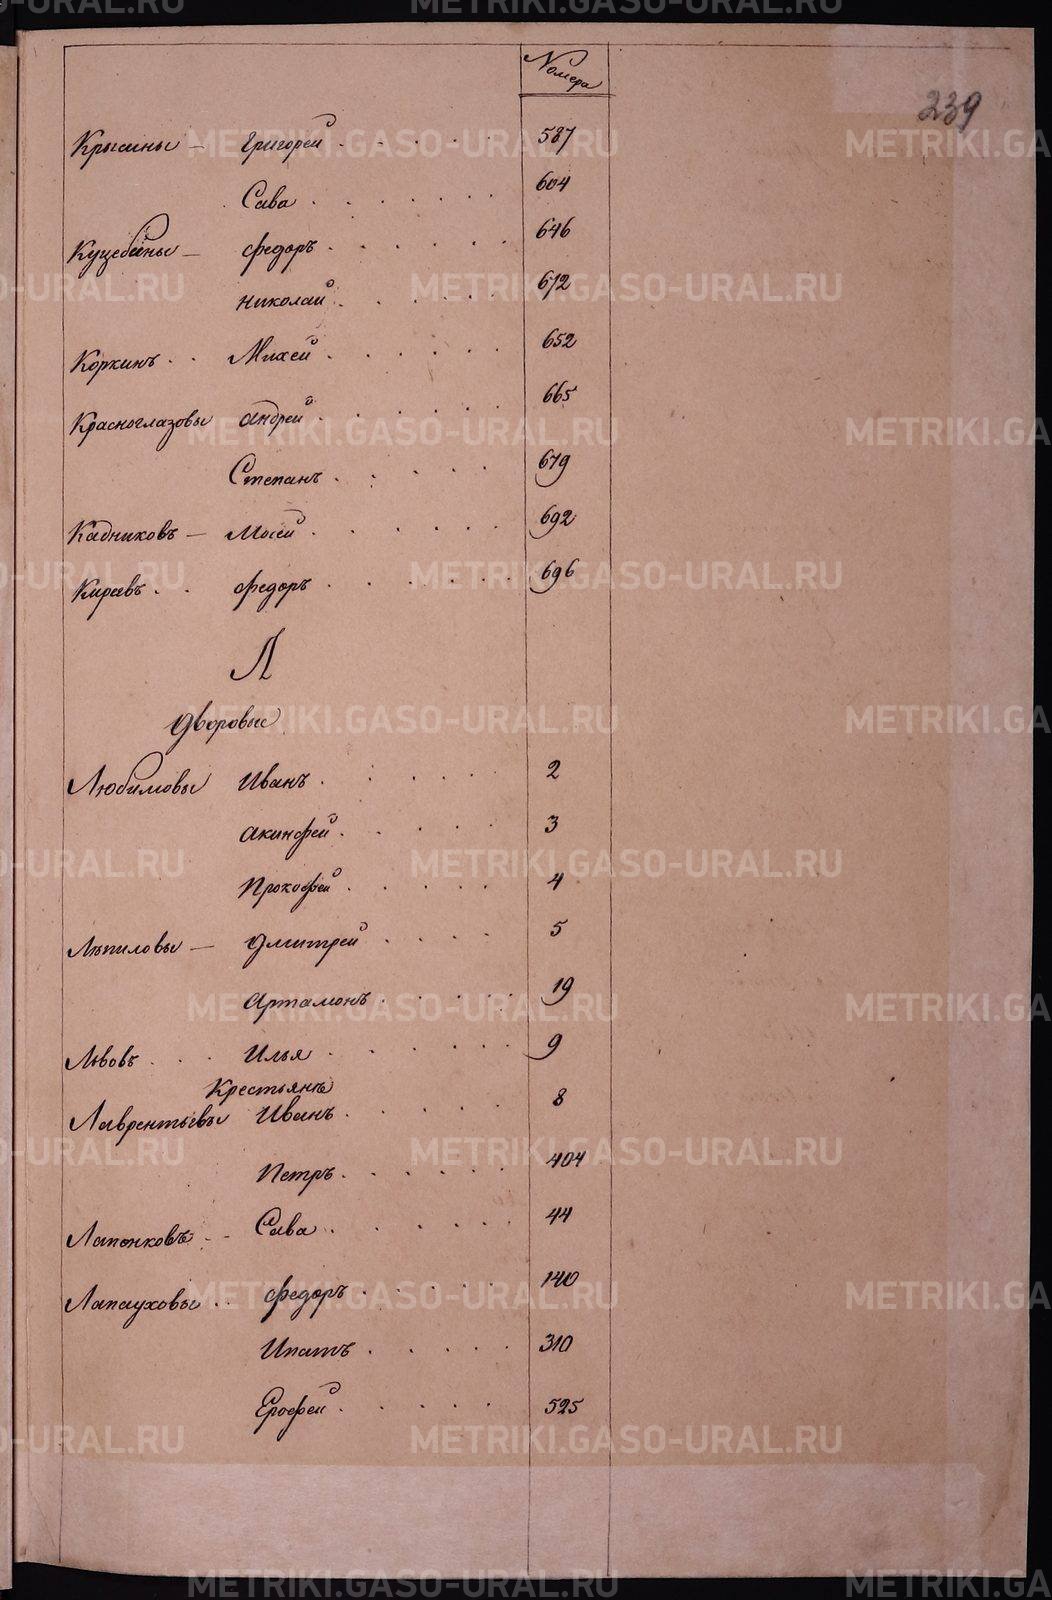 Номера
239
Крысины — Григорей . . . . . 587
Сава . . . . . . 604
Куцебины — Федоръ . . . . . . 646
Николай . . . . . 672
Коркинъ . . Михей . . . . . 652
Красноглазовы Андрей . . . . . 665
Степанъ . . . . . 679
Кадниковъ — Мосей . . . . . 692
Киревъ . . Федоръ . . . . . . 696
Л
Дворовые
Любимовы Иванъ . . . . . 2
Акинфей . . . . . 3
Прокофей . . . . . 4
Лѣпиловы — Дмитрей . . . . 5
Артамонъ . . . . . 19
Львовъ . . . Илья . . . . . . 9
Крестьянѣ
Лаврентьевы Иванъ . . . . . 8
Петръ . . . . . . 404
Лапонковъ - - Сава . . . . . . 44
Лапауховы . . Федоръ . . . . . 140
Ипатъ . . . . . 310
Ерофей . . . . . 525
METRIKI.GASO-URAL.RU